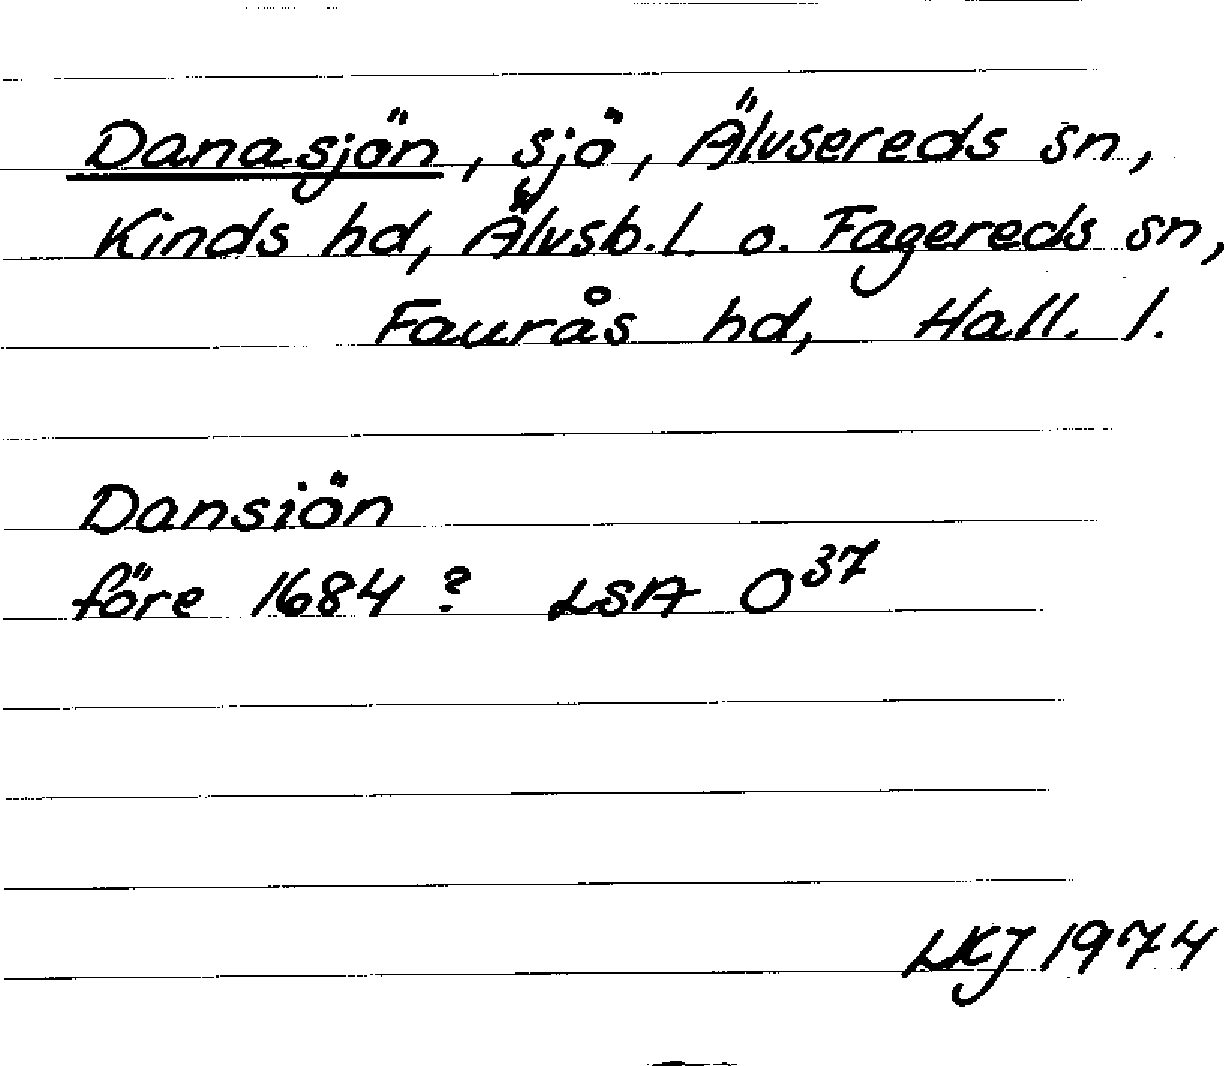 Danasjön, sjö, Älvsereds sn,
Kinds hd, Älvsb. l. o. Fagereds sn,
Faurås hd, Hall. l.
Dansiön
före 1684? LSA O³⁷
LKJ 1974